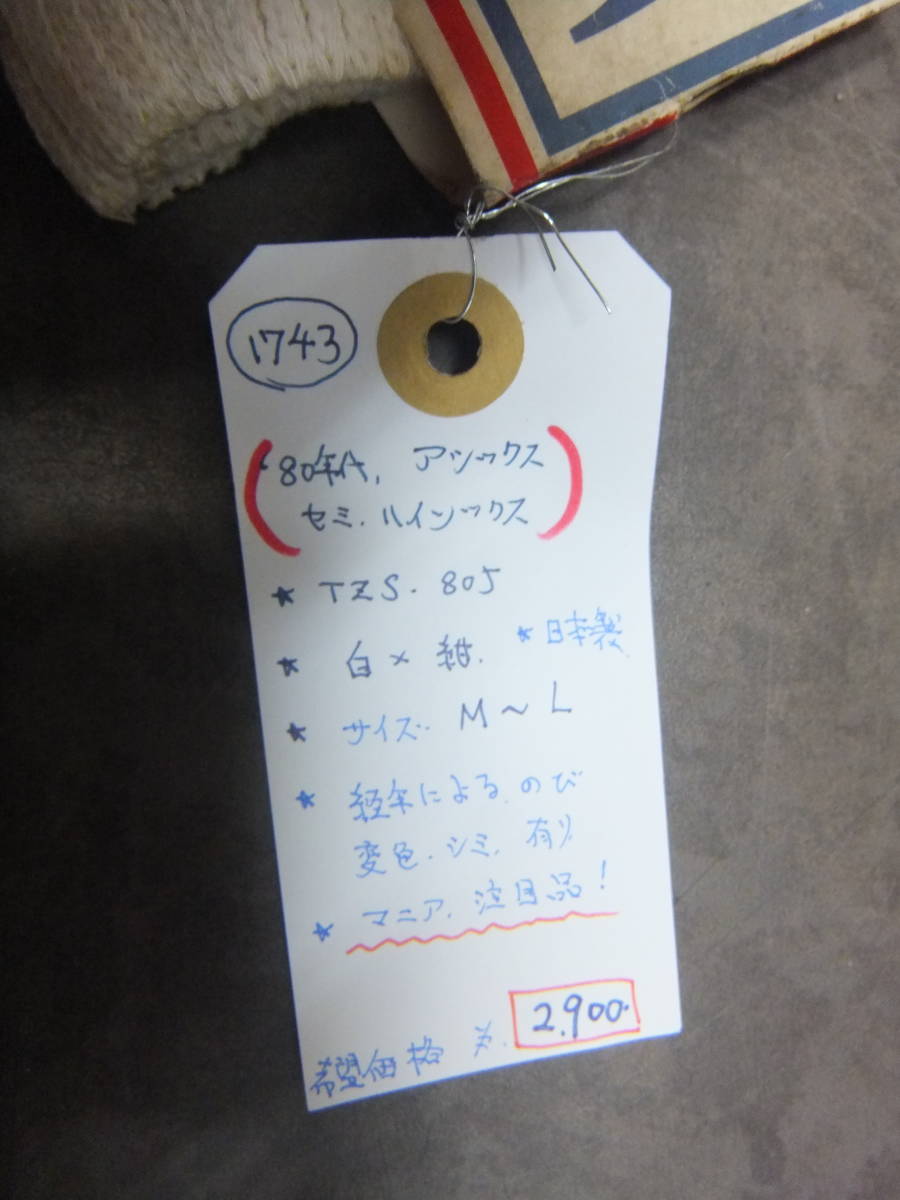 1743
'80年代, アシックス
セミ.ハイソックス
★ TZS. 805
★ 白×紺. ★日本製
★ サイズ. M~L
★ 経年による.のび
変色.シミ.有り
★ マニア.注目品!
希望価格 ¥. 2,900.